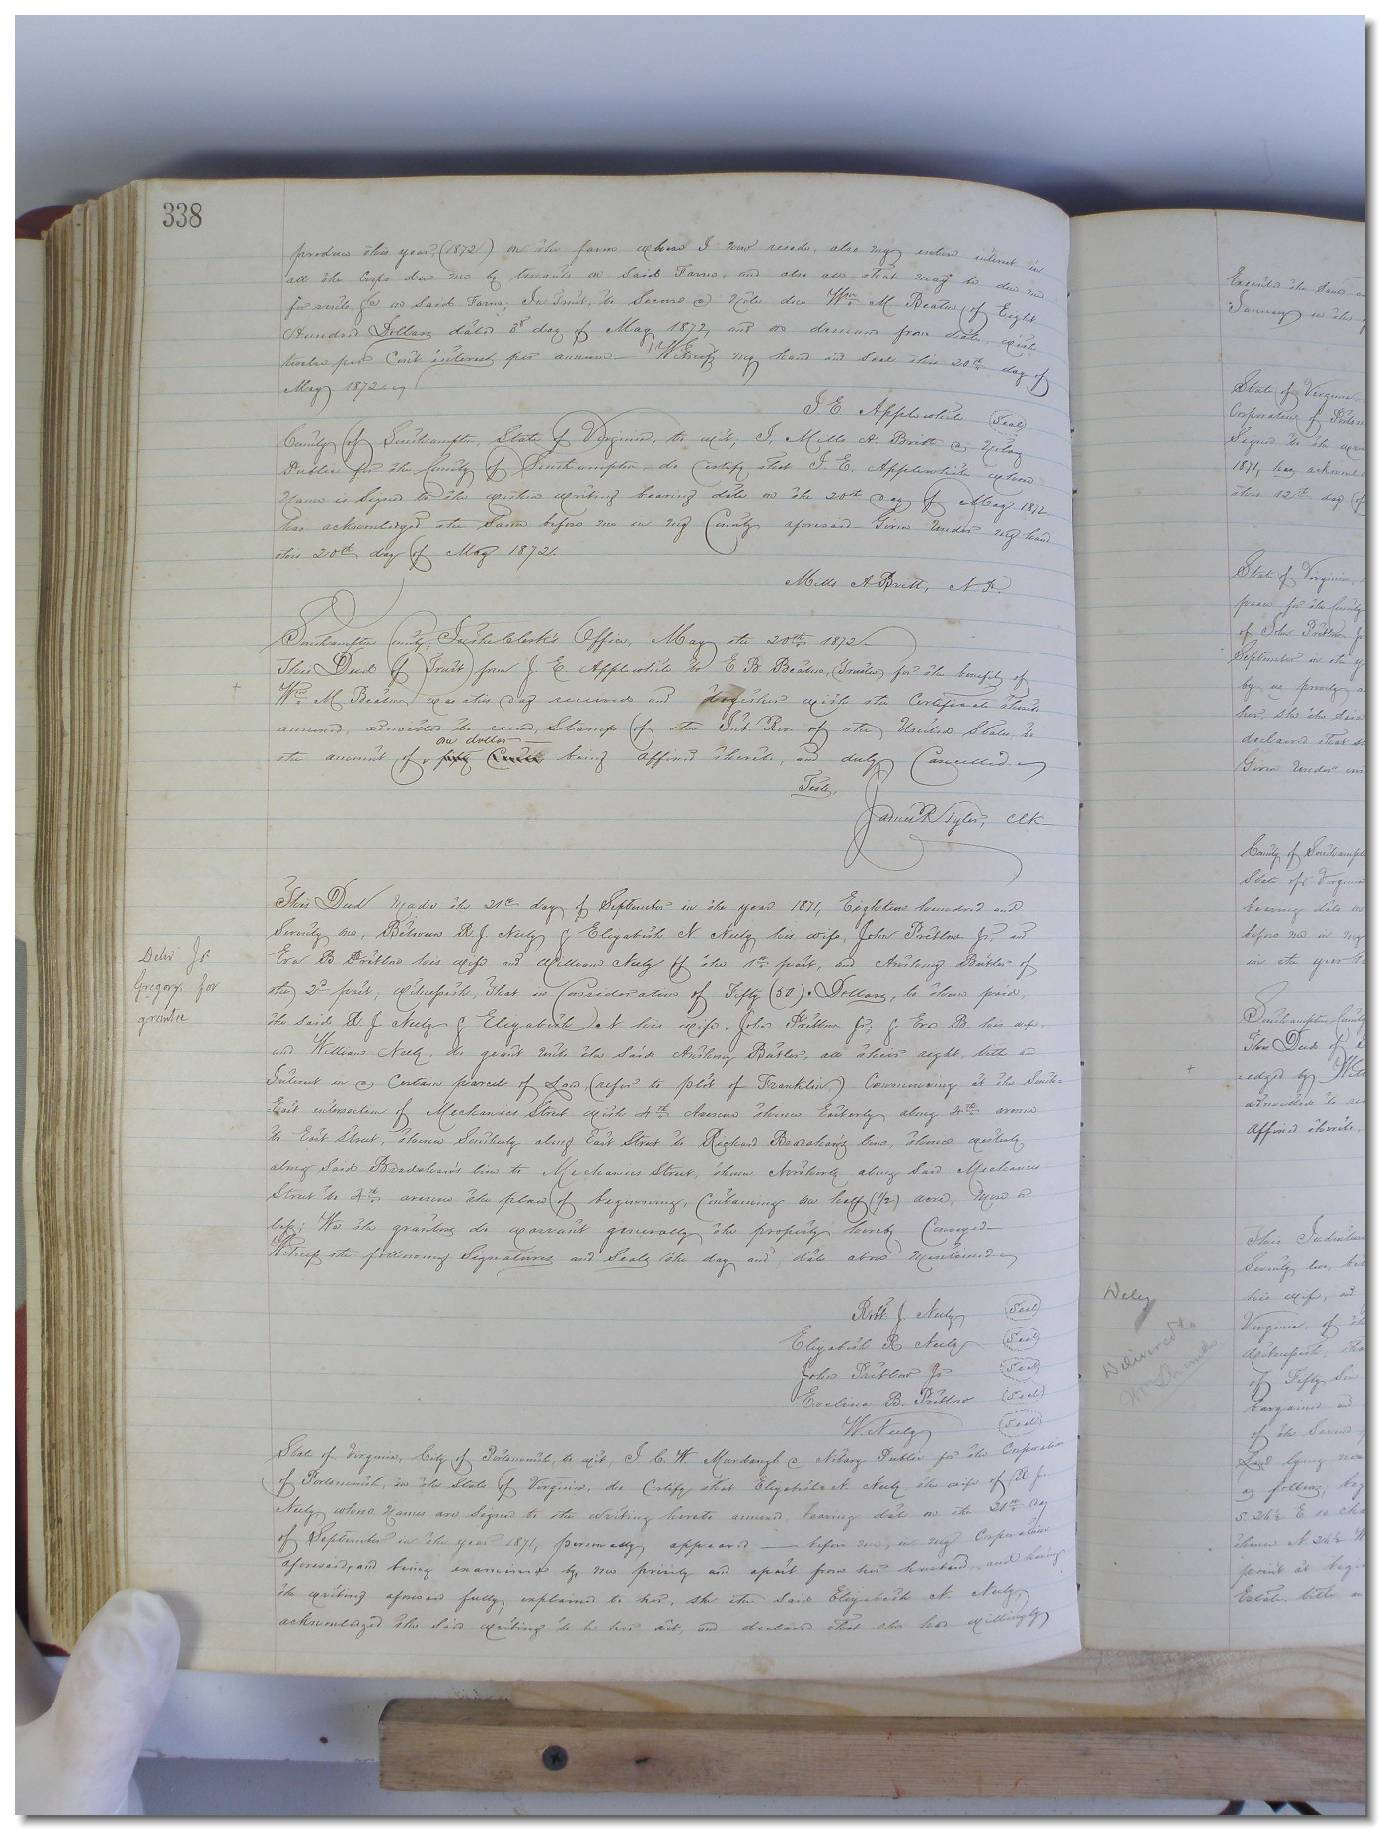 338
produce this year, (1872) on the farm where I now reside, also my entire interest in
all the crops due me by tenants on said Farm, and also all that may be due me
for rents, &c on said Farm; In Trust, to Secure a Note due Wm M Beaton, of Eight
Hundred Dollars dated 3d day of May 1872, and on demand from date, with
twelve per Cent interest per annum— Witness my hand and seal this 20th day of
May 1872
J E Applewhite (Seal)
County of Southampton, State of Virginia, to wit, I, Mills A Britt a Notary
Public for the County of Southampton do certify that J. E. Applewhite whose
Name is Signed to the within writing bearing date on the 20th day of May 1872
has acknowledged the Same before me in my County aforesaid— Given Under my hand
this 20th day of May 1872.
Mills A Britt, N. P.
Southampton County; In the Clerk's Office, May the 20th 1872
This Deed of Trust from J. E Applewhite to E B Beaton, (Trustee) for the benefit of
Wm M Beaton was this day received and together with the Certificate thereto
annexed, admitted to record, Stamps of the Int. Rev. of the United States, to
one dollar
the amount of fifty Cents being affixed thereto, and duly Cancelled
Teste,
James R Tyler, Clk
This Deed Made the 21st day of September in the year 1871, Eighteen hundred and
Seventy one, Between R. J. Neely & Elizabeth N. Neely his wife, John Pretlow Jr. and
Eva B Pretlow his wife and William Neely of the 1st part, and Anthony Butler of
the 2d part, witnesseth, That in Consideration of Fifty (50) Dollars, to them paid,
the said R J Neely & Elizabeth N his wife, John Pretlow Jr, & Eva B his wife,
and William Neely, do grant unto the said Anthony Butler, all their right, title &
Interest in a Certain parcel of Land, (refer to plot of Franklin) Commencing at the South=
=East intersection of Mechanics Street with 4th Avenue thence Easterly along 4th avenue
to East Street, thence Southerly along East Street to Richard Bradshaw's line, thence westerly
along Said Bradshaw's line to Mechanics Street, thence Northerly along Said Mechanics
Street to 4th avenue the place of beginning, Containing one half (1/2) acre, More or
less; We the grantors do warrant generally the property hereby Conveyed—
Witness the following Signatures and Seals the day and date above Mentioned
Delivd Jr
Gregory for
grantee
Robt. J Neely (Seal)
Elizabeth N Neely (Seal)
John Pretlow Jr (Seal)
Evelina B. Pretlow (Seal)
W. Neely (Seal)
State of Virginia, City of Portsmouth, to wit, I. C. W. Murdaugh a Notary Public for the Corporation
of Portsmouth, in the State of Virginia, do Certify that Elizabeth N. Neely the wife of R J.
Neely whose Names are Signed to the writing hereto annexed bearing date on the 21st day
of September in the year 1871, personally appeared — before me, in my Corporation
aforesaid, and being examined by me privily and apart from her husband, and having
the writing aforesaid fully explained to her, she the said Elizabeth N. Neely
acknowledged the said writing to be her act, and declared that she had willingly
Executed the Same
January in the
State of Virginia
Corporation of Ports
Signed to the
1871, has acknowl
this 12th day of
State of Virginia,
peace for the County
of John Pretlow Jr
September in the y
by me privily a
her, she the said
declared that s
Given Under
County of Southampt
State of Virginia
bearing date on
before me in my
in the year
Southampton County
This Deed of
=edged by
admitted to re
affixed thereto.
This Indenture
Seventy two, be
his wife, and
Virginia, of the
witnesseth, tha
of Fifty five
bargained and
of the Second
Land lying
as follows, beg
thence N 24½ W
point at begin
Estate, title
Deliv
Delivered to